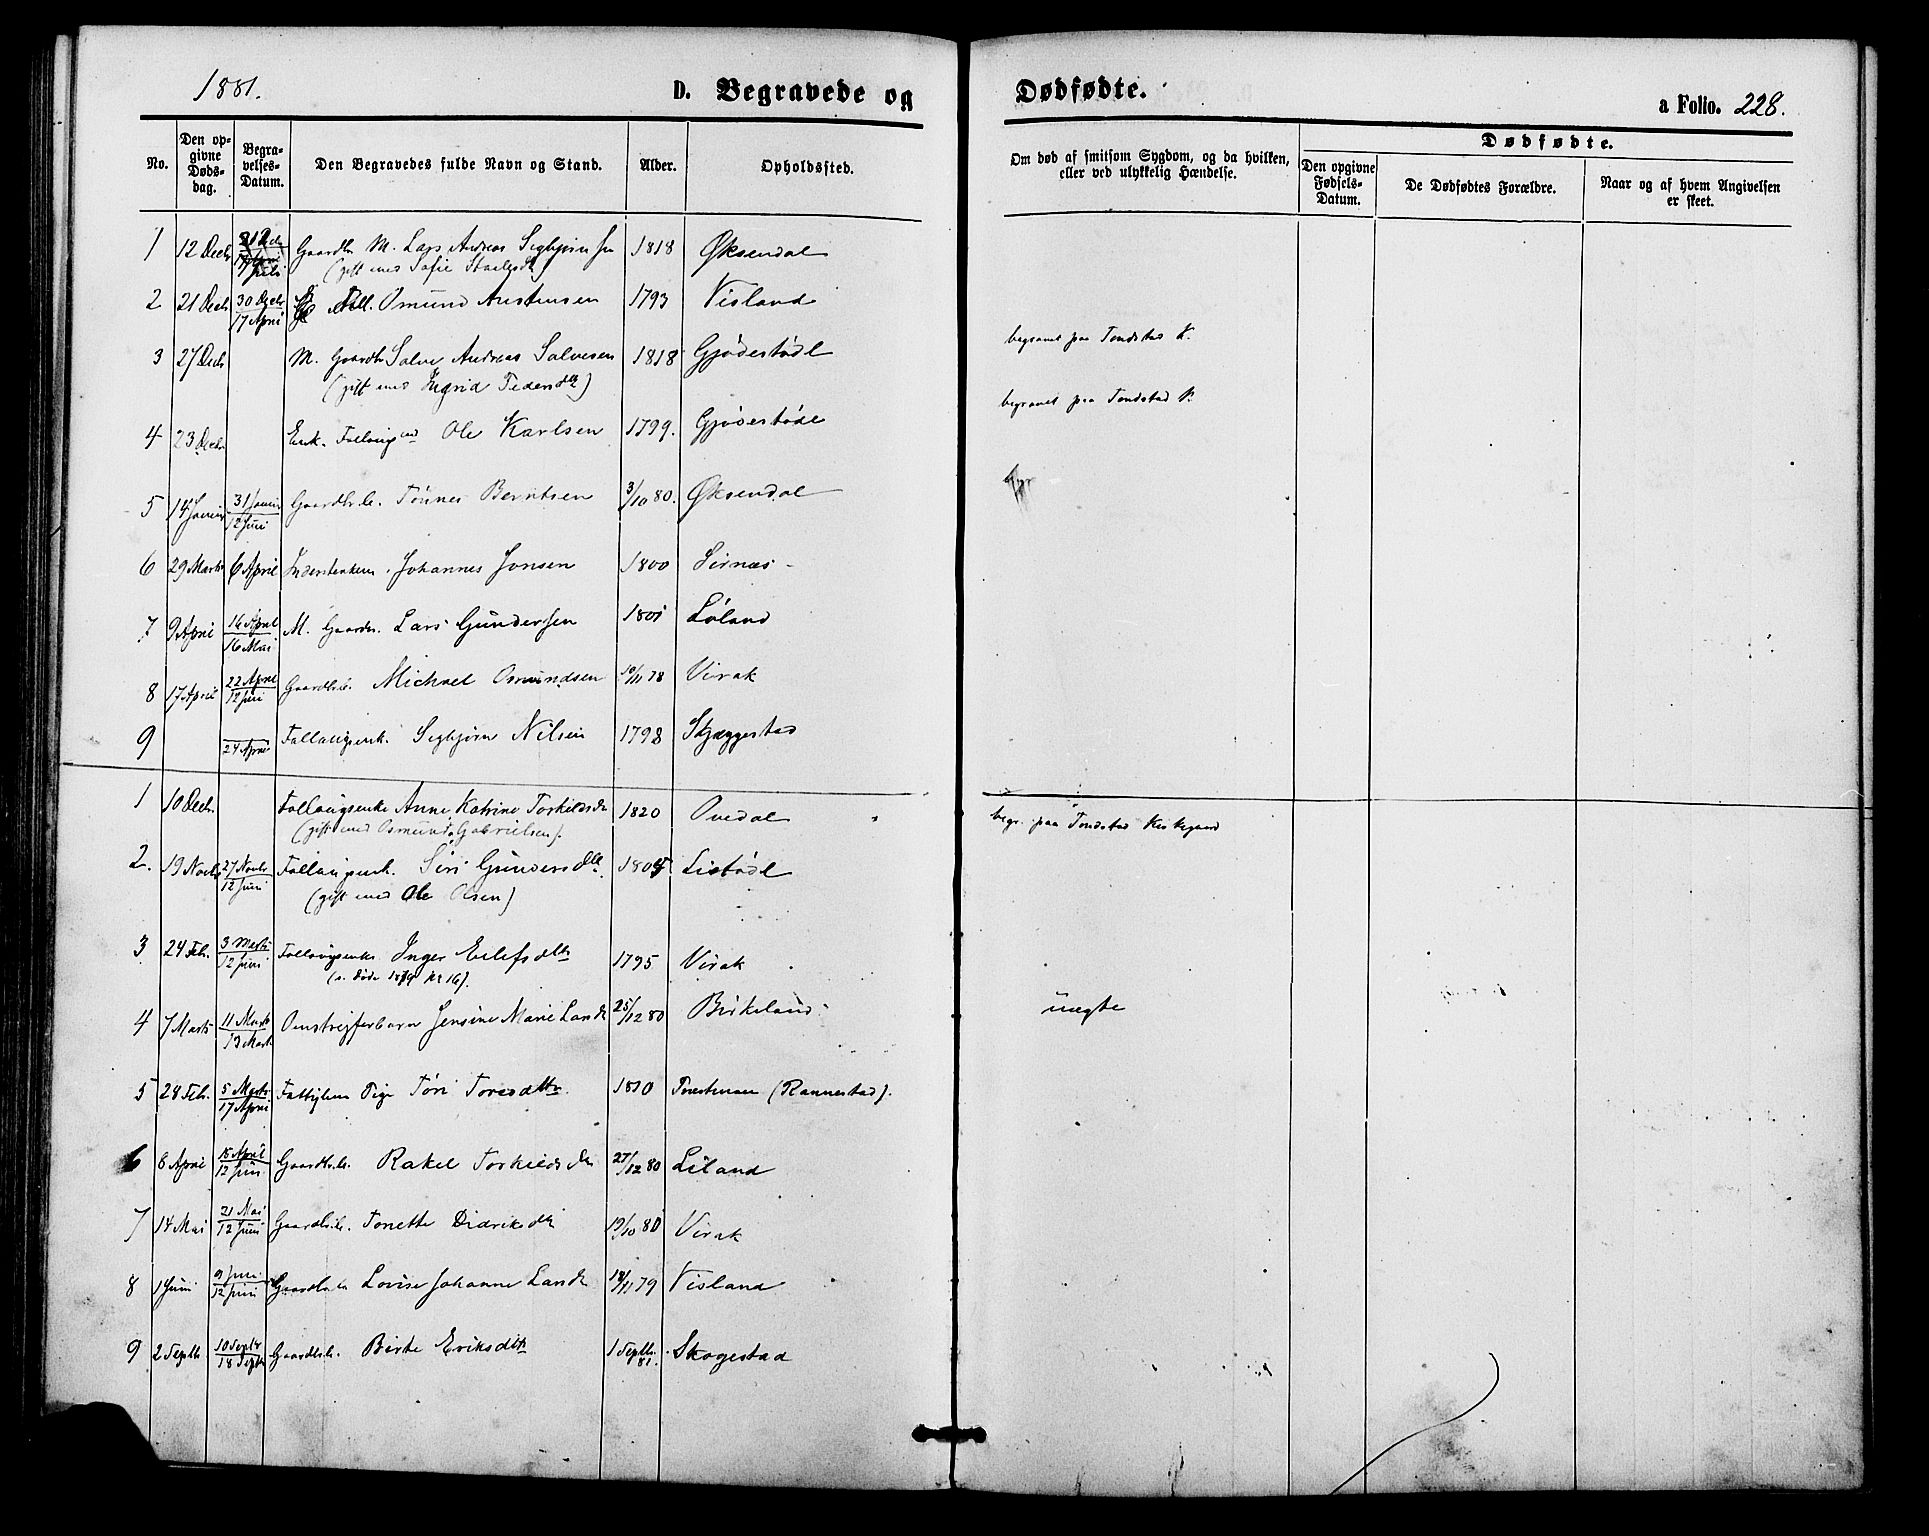 1881.
D. Begravede og Dødfødte.
a Folio. 228.
No.
Den op-
givne
Døds-
dag.
Begra-
velses-
Datum.
Den Begravedes fulde Navn og Stand.
Alder.
Opholdssted.
Om død af smitsom Sygdom, og da hvilken,
eller ved ulykkelig Hændelse.
Dødfødte.
Den opgivne
Fødsels-
Datum.
De Dødfødtes Forældre.
Naar og af hvem Angivelsen
er skeet.
1 12 Decbr 21 Decbr Gaardbr M. Lars Andreas Sigbjørnsen 1818 Øksendal
(gift med Sofie
2 21 Decbr 30 Decbr 17 April Omund Austensen 1793 Visland
3 27 Decbr M. Gaardbr Salve Andreas Salvesen 1818 Gjødestødl begravet paa Tonstad K.
(gift med Ingrid Pedersdtr)
4 23 Decbr Enk. Follaugsmd Ole Karlsen 1799. Gjødestødl begravet paa Tonstad K.
5 14 Januar 31 Januar 12 Juni Gaardbrb. Tønnes Berntsen 3/10 80. Øksendal
6 29 Marts 6 April Inderstenkem. Johannes Jonsen 1800 Sirnæs
7 9 April 16 April 16 Mai M. Gaardbr. Lars Gundersen 1801 Løland
8 17 April 22 April 12 Juni Gaardbrb. Michael Osmundsen 10/11 78 Virak
9 24 April Follaugsenk. Sigbjørn Nilsen 1798 Skjæggestad
1 10 Decbr. Follaugsenke Anne Katrine Torkildsdtr 1820 Ovedal begr. paa Tonstad Kirkegaard
(gift med Osmund Gabrielsen).
2. 19 Novbr 27 Novbr 12 Juni Follaugsenk. Siri Gundersdtr. 1805 Listødl
(gift med Ole Olsen)
3 24 Feb. 3 Marts 12 Juni Follaugsenke Inger Eilefsdtr 1795 Virak
(s. døde 1879 Nr 16).
4 7 Marts 11 Marts 13 Marts Omstreiferbarn Jensine Marie Larsdtr 25/12 80 Birkeland uægte
5 28 Feb. 5 Marts 17 April Fattiglem Pige Tøri Toresdtr. 1810 (Rannestad).
6 8 April 18 April 12 Juni Gaardbrb. Rakel Torkildsdtr 27/12 80 Liland
7 14 Mai 21 Mai 12 Juni Gaardbrb. Tonette Didriksdtr 19/10 80 Virak
8 1 Juni 9 Juni 12 Juni Gaardbrb. Lovise Johanne Larsdtr 14/11 79 Visland
9 2 Septbr 10 Septbr 18 Septbr Gaardbrb. Birte Eriksdtr 1 Septbr. 81. Skogestad